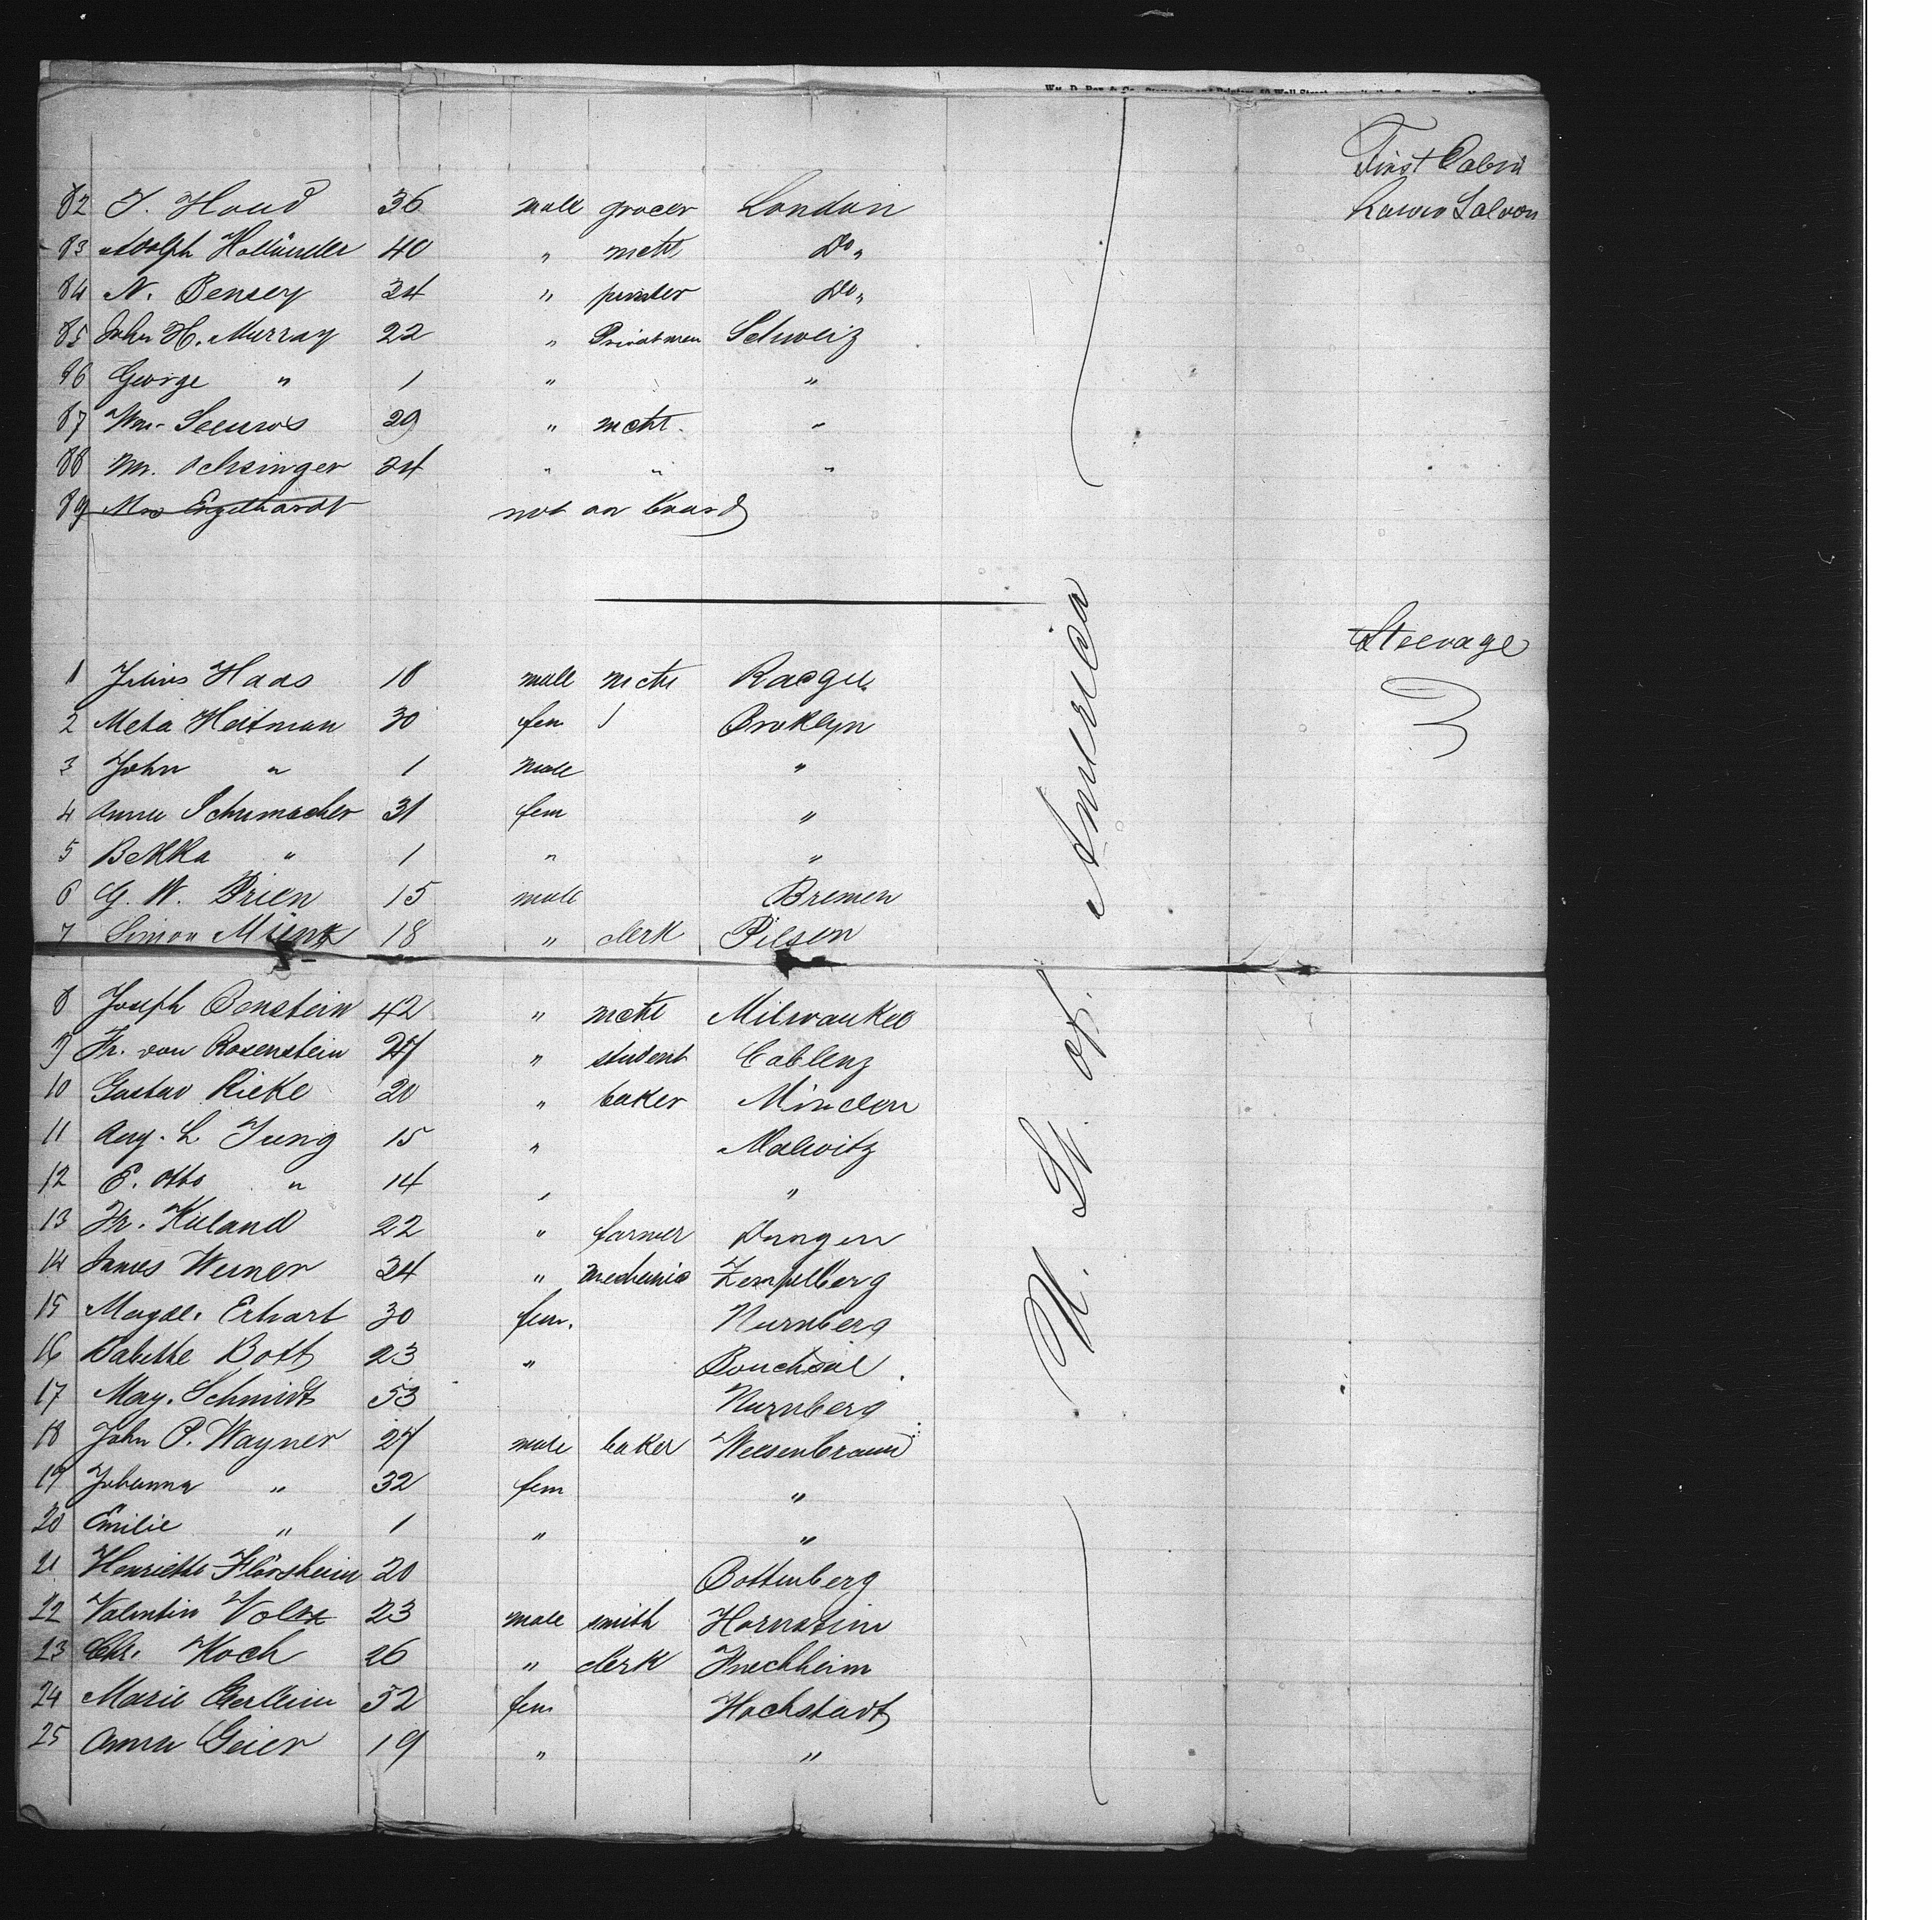 First Cabin
82 J. Houd 36 male grocer London
Lower Saloon
83 Adolph Holländer 40 " mcht Do "
84 N. Bensey 34 " printer Do "
85 John H. Murray 22 " Privatman Schweiz
86 George " 1 " "
87 Wm. 29 " mcht. "
88 M. Ochsinger 24 " " "
89 Mrs Engelhardt not on board
Steerage
1 Julius Haas 18 male mcht
2 Meta Heitman 30 fem / Broklyn
3 John " 1 male "
4 Anna Schumacher 31 fem "
5 Bekka " 1 " "
6 G. W. Prien 15 male Bremen
7 Simon Münk 18 " clerk Pilsen
8 Joseph Benstein 42 " mcht Milwaukee
9 Fr. von Rosenstein 27 " student Coblenz
10 Gustav Rieke 20 " baker Minden
11 Aug. L Jung 15 " Malwitz
12 E. Otto " 14 " "
13 Fr. Kuland 22 " farmer
14 James Werner 24 " mechanic Zempelberg
15 Magde. Erhart 30 fem. Nurnberg
16 Babette Bott 23 "
17 Mag. Schmidt 53 Nurnberg
18 John P. Wagner 27 male baker
19 Johanna " 32 fem "
20 Emilie " 1 " "
21 Henriette Flörsheim 20 Bottenberg
22 Valentin Volz 23 male smith Hornstein
23 Chr. Koch 26 " clerk
24 Marie 52 fem Hochstadt
25 Anna Geier 19 " "
U. St. of. America